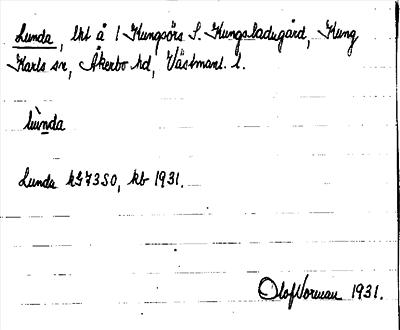 Lunda, lht å 1 Kungsörs S. Kungsladugård, Kung
Karls sn, Åkerbo hd, Västmanl. l.
lùnda
Lunda kG73S0, kb 1931.
Olof Norman 1931.